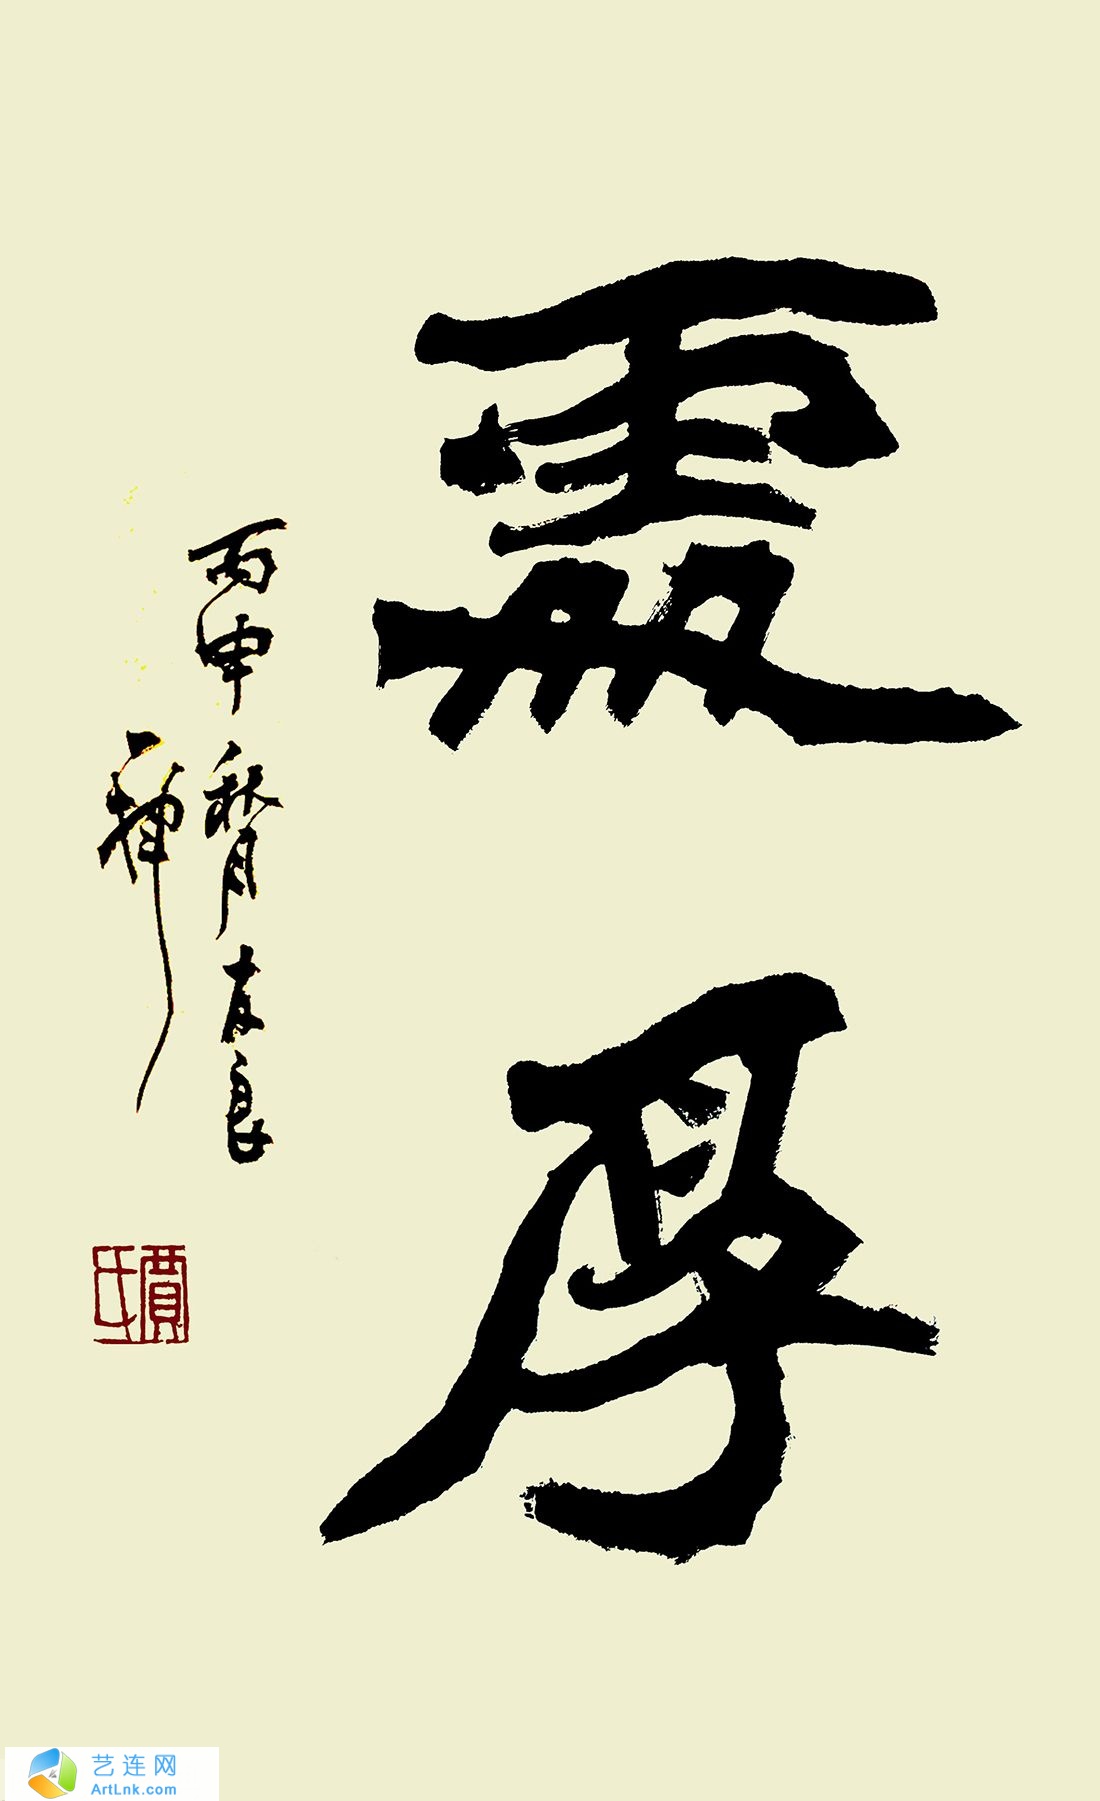 處厚
丙申秋月
賈氏
艺连网
ArtLnk.com